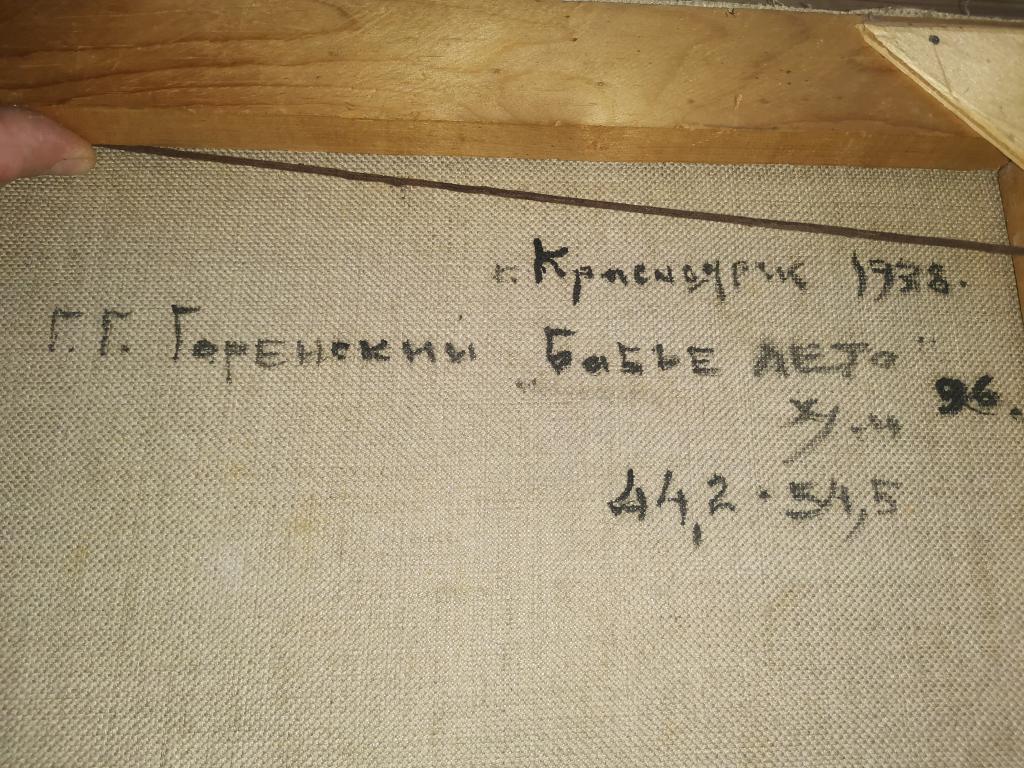 г. Красноярск 1998.
Г.Г. Горенский "Бабье лето"
96.
х/.м
44,2 · 54,5